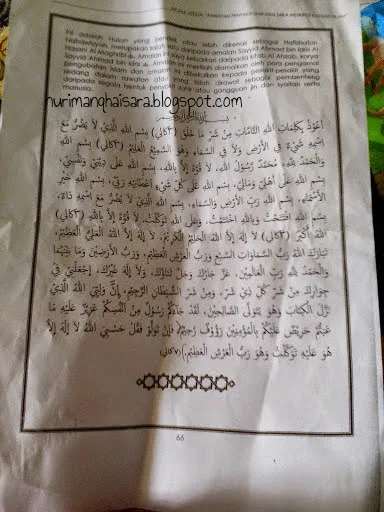 Ini adalah Husun yang pendek atau lebih dikenal sebagai Hafizhatun
Nabawiyyah, merupakan salah satu daripada amalan Sayyid Ahmad bin Idris Al
Hasani Al Maghribi. Amalan ini saya keluarkan daripada kitab Al Ahzab, karya
Sayyid Ahmad bin Idris. Amalan ini mestilah diamalkan oleh para pengamal
pengubatan Islam dan amalan ini dibekalkan kepada pesakit-pesakit yang
sedang dalam rawatan atau yang telah dirawat sebagai pembenteng
daripada segala bentuk penyakit zahir atau gangguan jin dan syaitan serta
manusia.
nurimanghaisara.blogspot.com
أَعُوْذُ بِكَلِمَاتِ اللهِ التَّامَّاتِ مِنْ شَرِّ مَا خَلَقَ (٣كالي) بِسْمِ اللهِ الَّذِيْ لاَ يَضُرُّ مَعَ
اسْمِهِ شَيْءٌ فِي الأَرْضِ وَلاَ فِي السَّمَاءِ وَهُوَ السَّمِيْعُ الْعَلِيْمُ (٣كالي) بِسْمِ اللهِ
وَالْحَمْدُ للهِ، مُحَمَّدٌ رَسُوْلُ اللهِ، لاَ قُوَّةَ إِلاَّ بِاللهِ، بِسْمِ اللهِ عَلَى دِيْنِيْ وَنَفْسِيْ،
بِسْمِ اللهِ عَلَى أَهْلِيْ وَمَالِيْ، بِسْمِ اللهِ عَلَى كُلِّ شَيْءٍ أَعْطَانِيْهِ رَبِّيْ، بِسْمِ اللهِ خَيْرِ
الأَسْمَاءِ، بِسْمِ اللهِ رَبِّ الأَرْضِ وَالسَّمَاءِ، بِسْمِ اللهِ الَّذِيْ لاَ يَضُرُّ مَعَ اسْمِهِ دَاءٌ،
بِسْمِ اللهِ افْتَتَحْتُ وَبِاللهِ اخْتَتَمْتُ، وَعَلَى اللهِ تَوَكَّلْتُ، لاَ قُوَّةَ إِلاَّ بِاللهِ (٣كالي)
اللهُ أَكْبَرُ (٣كالي) لاَ إِلَهَ إِلاَّ اللهُ الْحَلِيْمُ الْكَرِيْمُ، لاَ إِلَهَ إِلاَّ اللهُ الْعَلِيُّ الْعَظِيْمُ،
تَبَارَكَ اللهُ رَبُّ السَّمَاوَاتِ السَّبْعِ وَرَبُّ الْعَرْشِ الْعَظِيْمِ، وَرَبُّ الأَرَضِيْنَ وَمَا بَيْنَهُمَا
وَالْحَمْدُ للهِ رَبِّ الْعَالَمِيْنَ، عَزَّ جَارُكَ وَجَلَّ ثَنَاؤُكَ، وَلاَ إِلَهَ غَيْرُكَ، اجْعَلْنِيْ فِيْ
جِوَارِكَ مِنْ شَرِّ كُلِّ ذِيْ شَرٍّ، وَمِنْ شَرِّ الشَّيْطَانِ الرَّجِيْمِ، إِنَّ وَلِيِّيَ اللهُ الَّذِيْ
نَزَّلَ الْكِتَابَ وَهُوَ يَتَوَلَّى الصَّالِحِيْنَ، لَقَدْ جَاءَكُمْ رَسُوْلٌ مِنْ أَنْفُسِكُمْ عَزِيْزٌ عَلَيْهِ مَا
عَنِتُّمْ حَرِيْصٌ عَلَيْكُمْ بِالْمُؤْمِنِيْنَ رَؤُوْفٌ رَحِيْمٌ، فَإِنْ تَوَلَّوْا فَقُلْ حَسْبِيَ اللهُ لاَ إِلَهَ إِلاَّ
هُوَ عَلَيْهِ تَوَكَّلْتُ وَهُوَ رَبُّ الْعَرْشِ الْعَظِيْمِ.)(٧كالي)
66